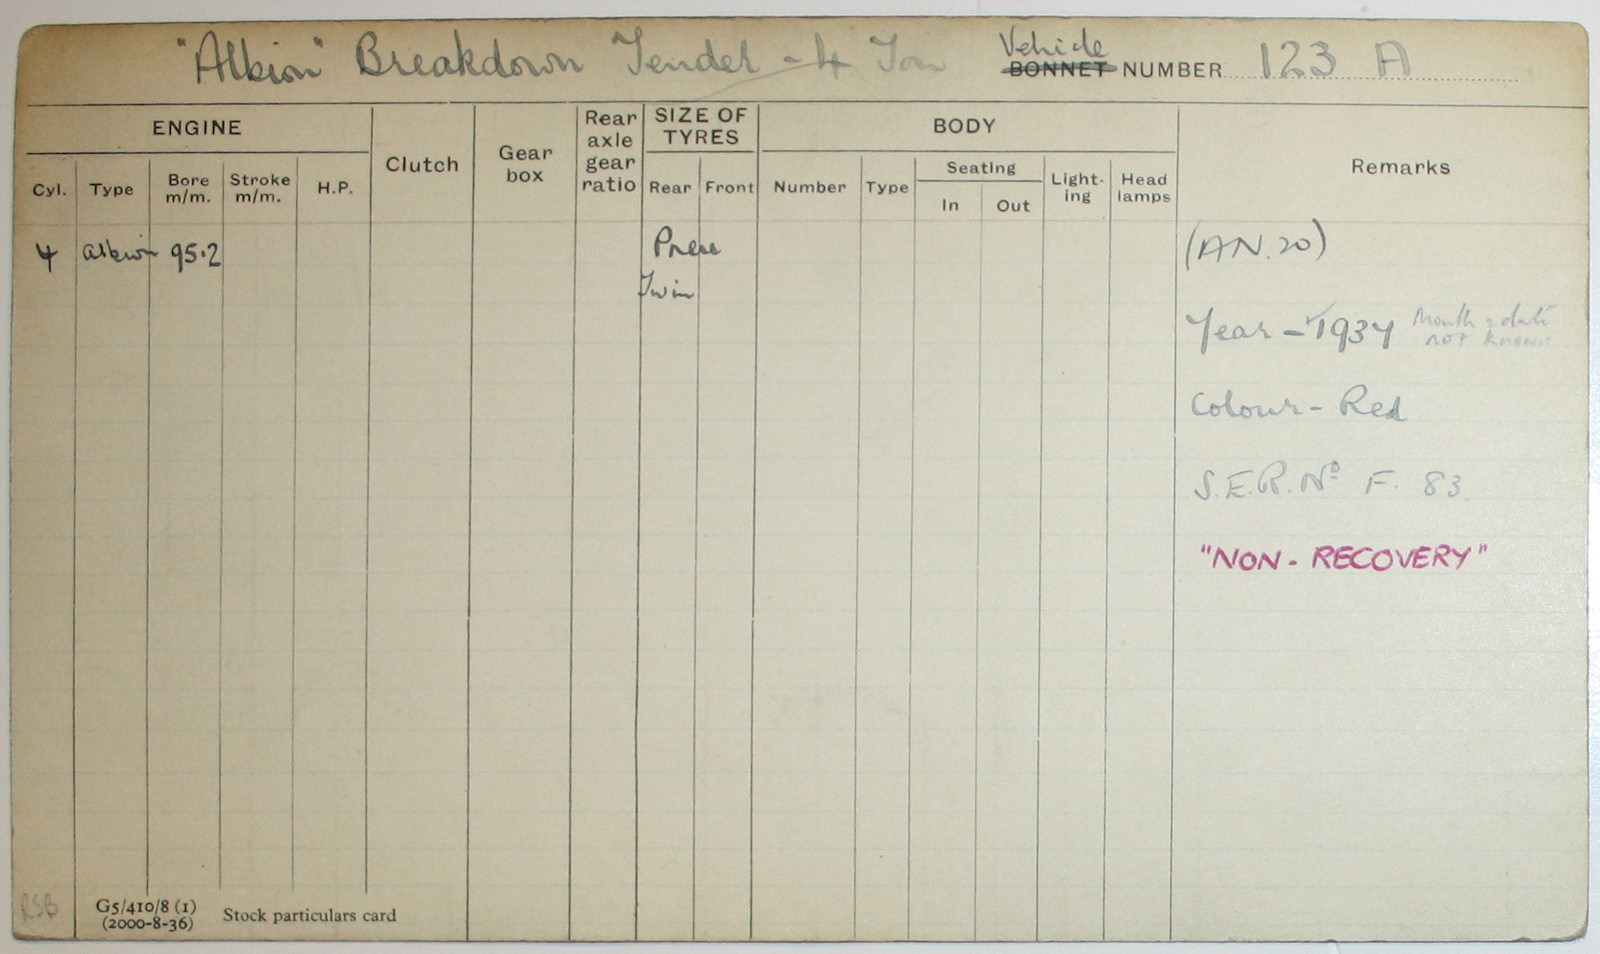 "Albion" Breakdown Tender - 4 Ton
Vehicle
BONNET NUMBER 123 A
ENGINE
Clutch
Gear box
Rear axle gear ratio
SIZE OF TYRES
BODY
Remarks
Cyl. Type Bore m/m. Stroke m/m. H.P.
Rear Front
Number Type
Seating
In Out
Light-ing
Head lamps
4 Albion 95·2
Pneu
Twin
(AN. 20)
Year - 1937 Month & date
not known
Colour - Red
S.E.R. Nº F. 83.
"NON - RECOVERY"
RSB
G5/410/8 (1)
(2000-8-36)
Stock particulars card